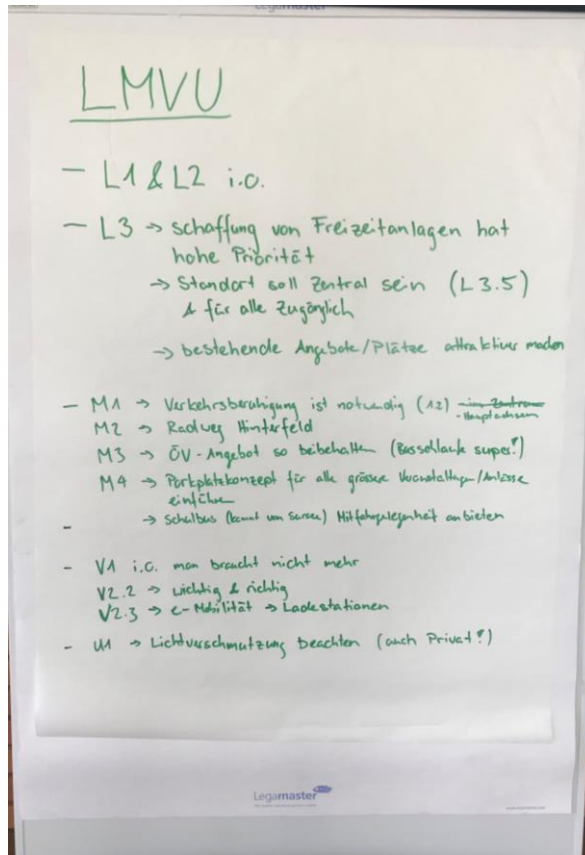 Legamaster
LMVU
- L1 & L2 i.o.
- L3 → Schaffung von Freizeitanlagen hat
hohe Priorität
→ Standort soll Zentral sein (L3.5)
& für alle Zugänglich
→ bestehende Angebote/Plätze attraktiver machen
- M1 → Verkehrsberuhigung ist notwendig (1.2)
- Hauptachsen
M2 → Radweg Hinterfeld
M3 → ÖV-Angebot so beibehalten (Busschlaufe super!)
M4 → Parkplatzkonzept für alle grössere Veranstaltungen/Anlässe
einführen
-
→ Schulbus (kommt von Sursee) Mitfahrgelegenheit anbieten
- V1 i.o. man braucht nicht mehr
V2.2 → wichtig & richtig
V2.3 → e-Mobilität → Ladestationen
- U1 → Lichtverschmutzung beachten (auch Privat!)
Legamaster